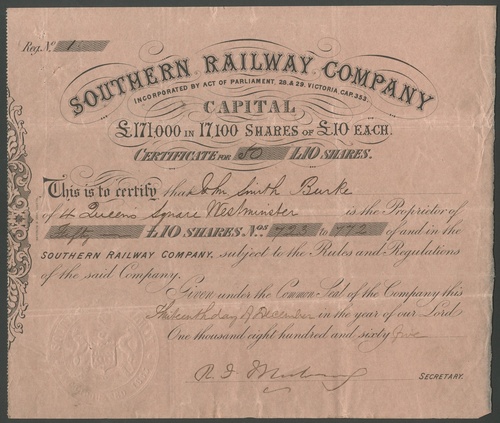 Reg. No. 1
SOUTHERN RAILWAY COMPANY
INCORPORATED BY ACT OF PARLIAMENT, 28 & 29, VICTORIA CAP. 353.
CAPITAL
£171,000 IN 17,100 SHARES OF £10 EACH.
CERTIFICATE FOR 50 £10 SHARES.
This is to certify that John Smith Burke
of 4 Queens Square Westminster is the Proprietor of
Fifty £10 SHARES. Nos 723 to 772 of and in the
SOUTHERN RAILWAY COMPANY, subject to the Rules and Regulations
of the said Company.
Given under the Common Seal of the Company this
day of December in the year of our Lord
One thousand eight hundred and sixty five
SECRETARY.